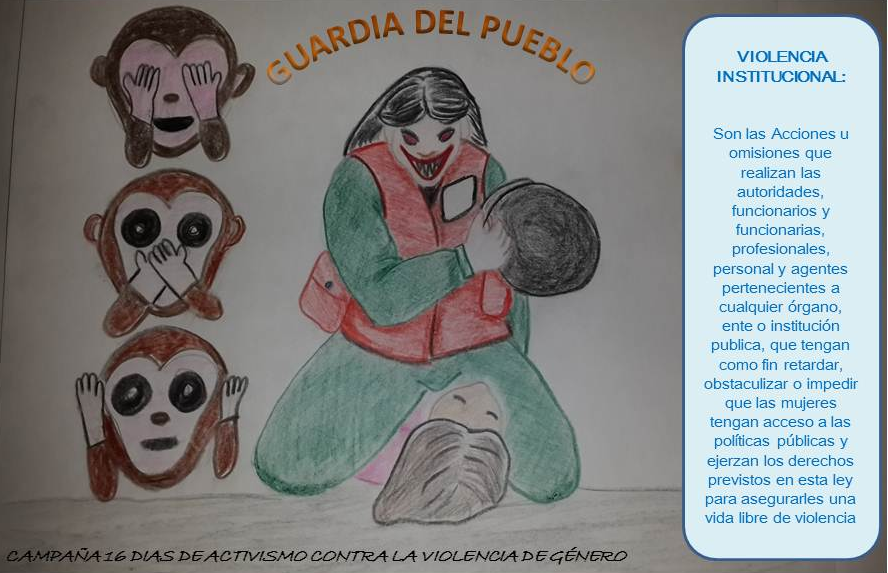 GUARDIA DEL PUEBLO
VIOLENCIA
INSTITUCIONAL:
Son las Acciones u
omisiones que
realizan las
autoridades,
funcionarios y
funcionarias,
profesionales,
personal y agentes
pertenecientes a
cualquier órgano,
ente o institución
publica, que tengan
como fin retardar,
obstaculizar o impedir
que las mujeres
tengan acceso a las
políticas públicas y
ejerzan los derechos
previstos en esta ley
para asegurarles una
vida libre de violencia
CAMPAÑA 16 DIAS DE ACTIVISMO CONTRA LA VIOLENCIA DE GÉNERO